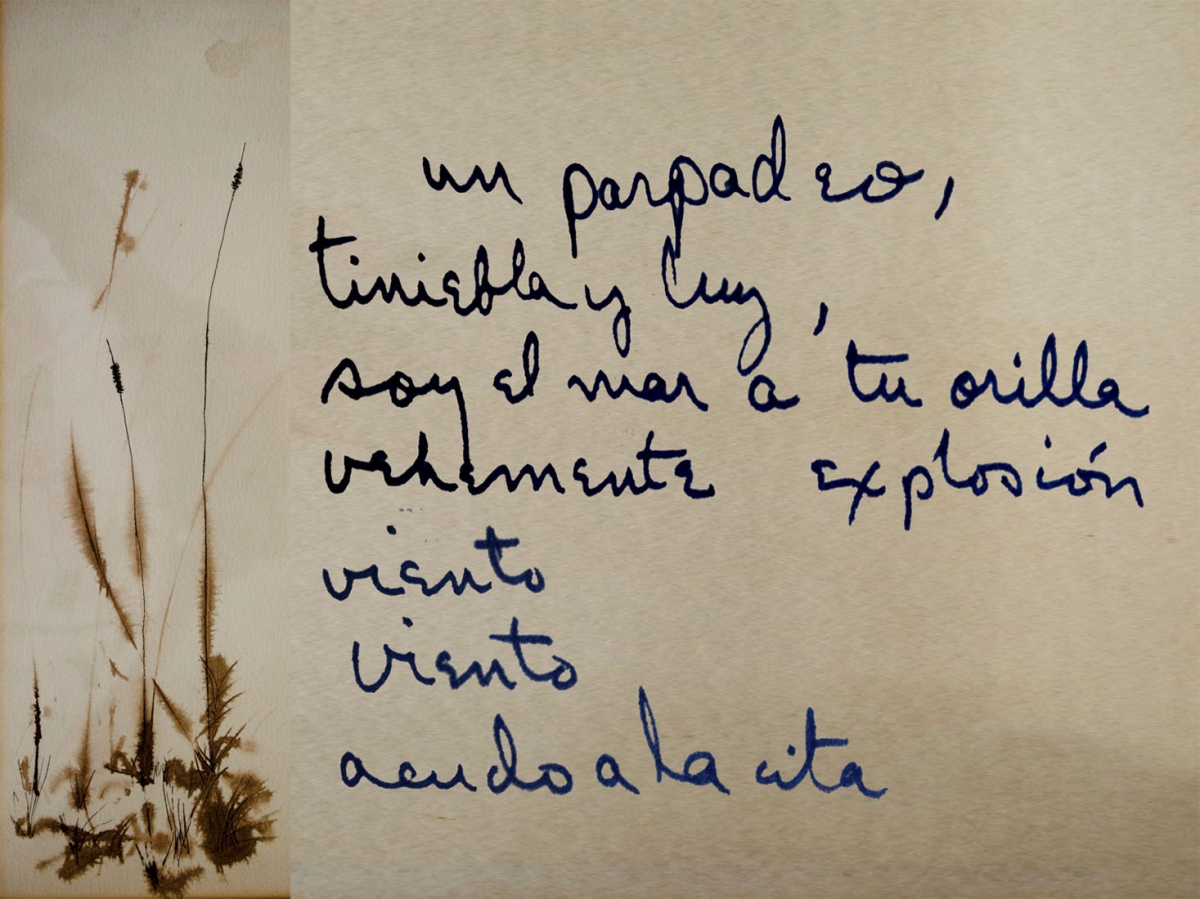 un parpadeo,
tiniebla y luz,
soy el mar a tu orilla
vehemente explosión
viento
viento
acudo a la cita